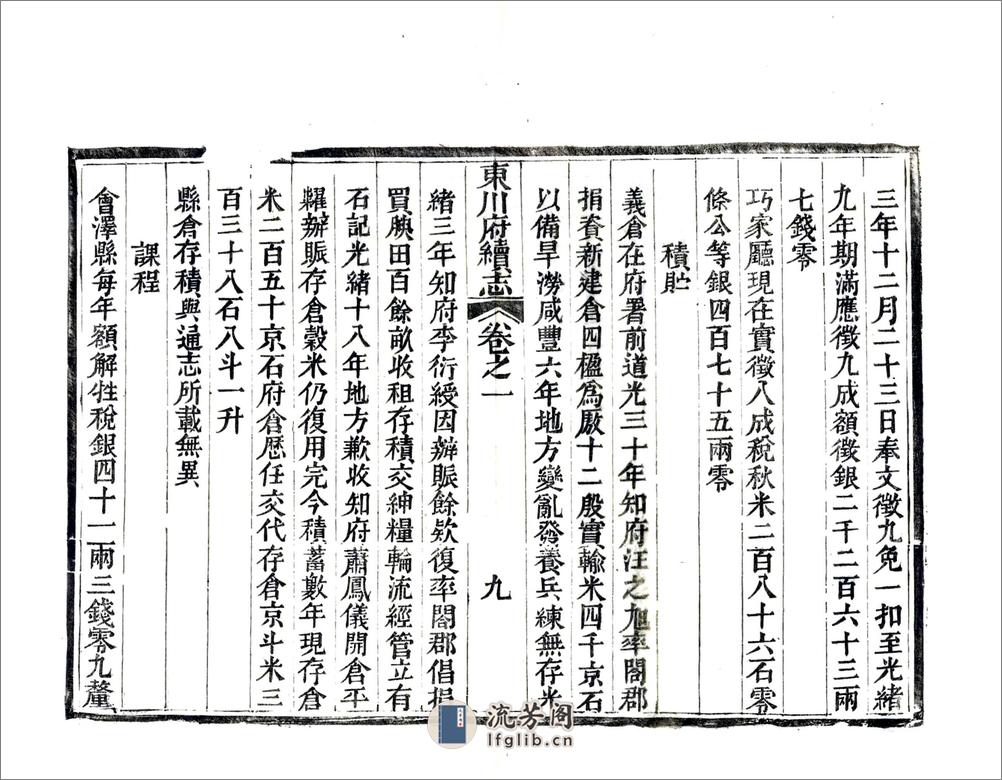 三年十二月二十三日奉文徵九免一扣至光緒
九年期滿應徵九成額徵銀二千二百六十三兩
七錢零
巧家廳現在實徵八成稅秋米二百八十六石零
條公等銀四百七十五兩零
積貯
義倉在府署前道光三十年知府汪之旭率閤郡
捐養新建倉四楹為廒十二殷實輸米四千京石
以備旱澇咸豐六年地方變亂發養兵練無存光
東川府續志 卷之一 九
緒三年知府李衍綬因辦賑餘欵復率閤郡倡捐
買腴田百餘畝收租存積交紳糧輪流經管立有
石記光緒十八年地方歉收知府蕭鳳儀開倉平
糶辦賑存倉穀米仍復用完今積蓄數年現存倉
米二百五十京石府倉歷任交代存倉京斗米三
百三十八石八斗一升
縣倉存積與通志所載無異
課程
會澤縣每年額解牲稅銀四十一兩三錢零九釐
流芳阁
lfglib.cn